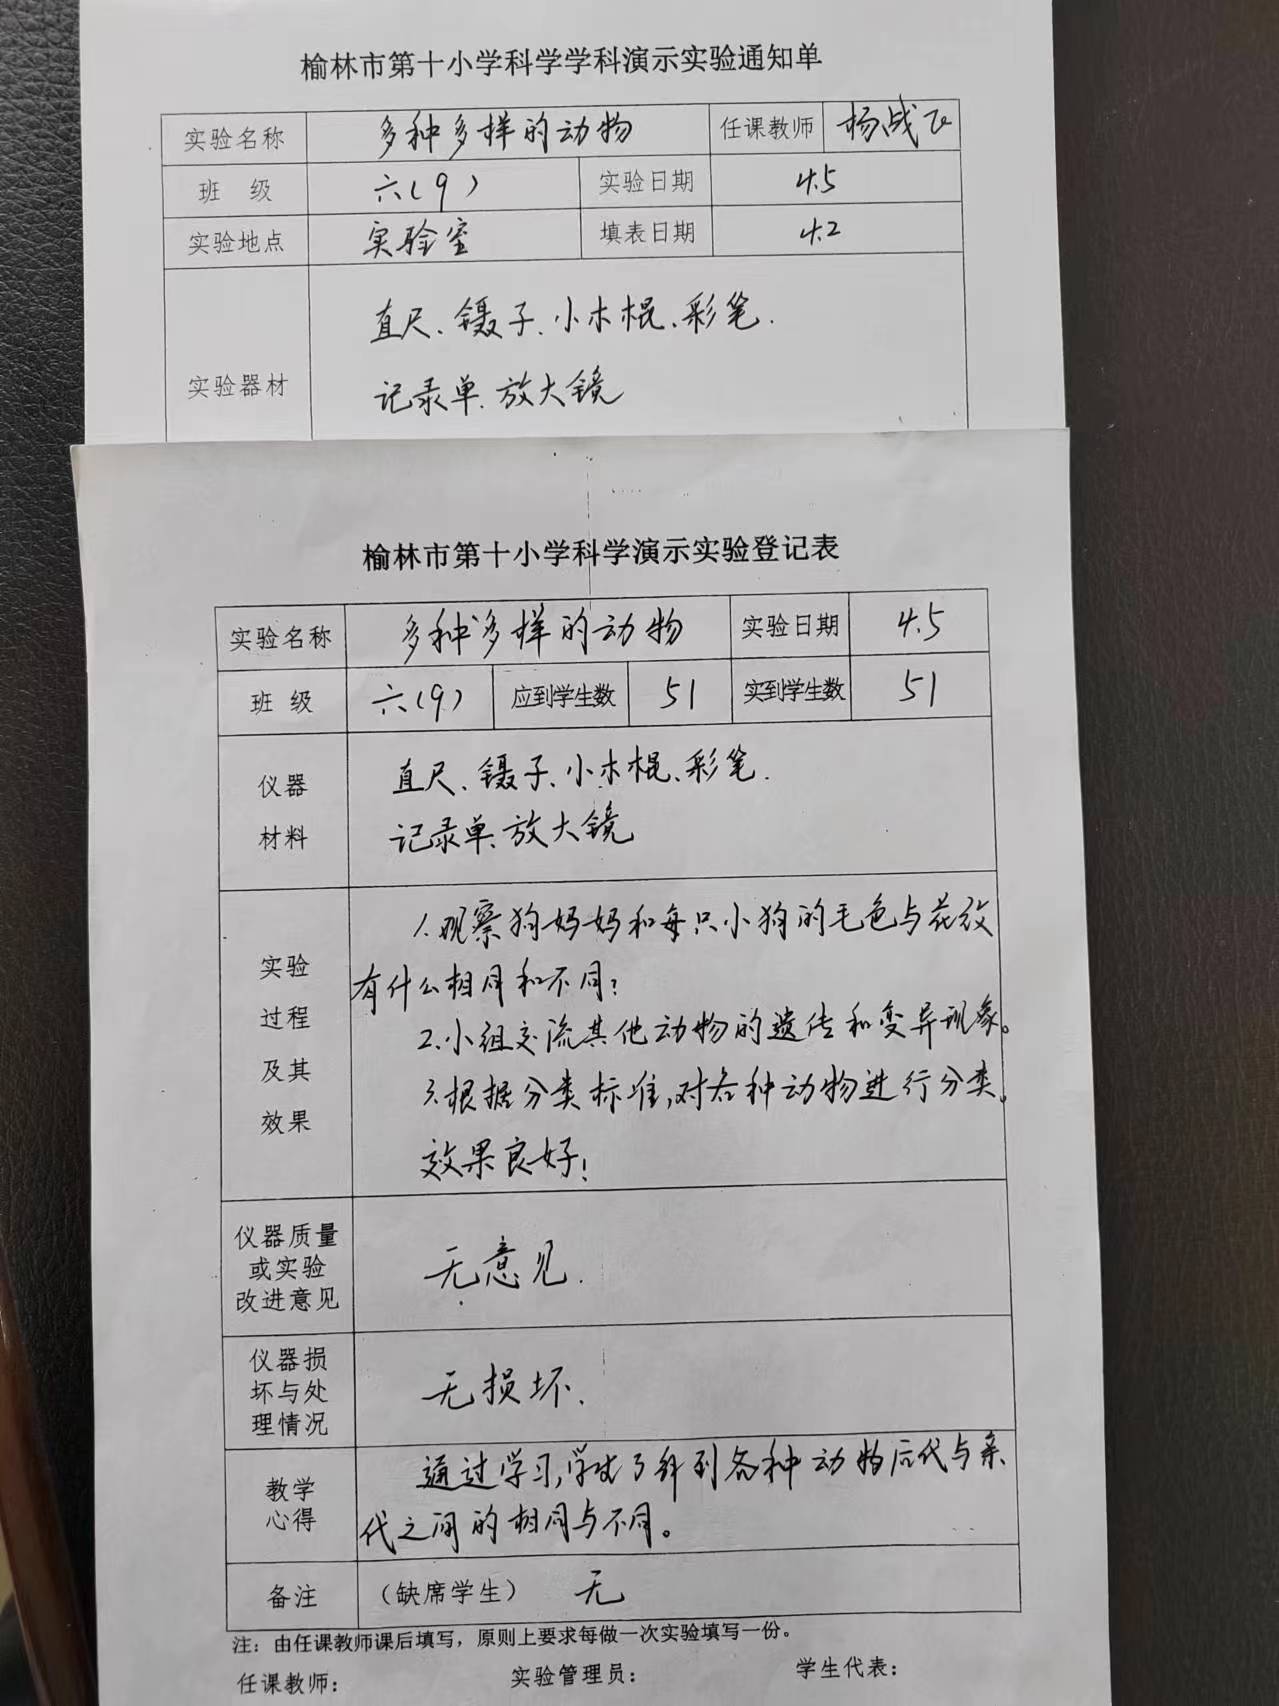 榆林市第十小学科学学科演示实验通知单
实验名称 多种多样的动物 任课教师 杨战飞
班 级 六(9) 实验日期 4.5
实验地点 实验室 填表日期 4.2
实验器材 直尺、镊子、小木棍、彩笔.
记录单、放大镜
榆林市第十小学科学演示实验登记表
实验名称 多种多样的动物 实验日期 4.5
班 级 六(9) 应到学生数 51 实到学生数 51
仪器 直尺、镊子、小木棍、彩笔.
材料 记录单、放大镜
实验
过程
及其
效果
1.观察狗妈妈和每只小狗的毛色与花纹
有什么相同和不同?
2.小组交流其他动物的遗传和变异现象。
3.根据分类标准,对各种动物进行分类。
效果良好!
仪器质量
或实验
改进意见
无意见.
仪器损
坏与处
理情况
无损坏.
教学
心得
通过学习,学生了解到各种动物后代与亲
代之间的相同与不同。
备注 (缺席学生) 无
注:由任课教师课后填写,原则上要求每做一次实验填写一份。
任课教师: 实验管理员: 学生代表: